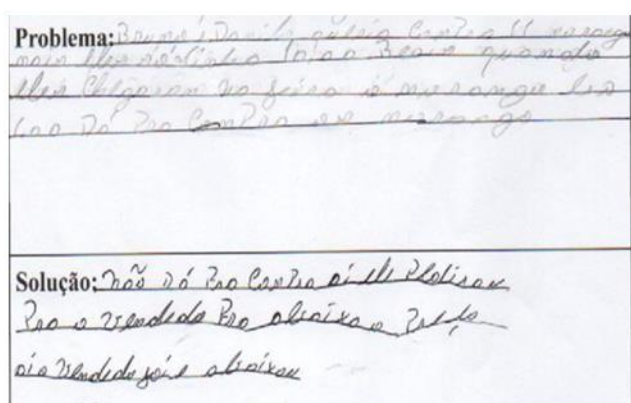 Problema: Bruno e Danilo queria Contra 11 morang
mais eles só tinha 10,00 Reais quando
eles Chegaram na feira o morango
não Dá Pra Compra os morango
Solução: não dá Pra Contra aí ele Pediram
Pra o vendedo Pra abaixa o
aí o vendedo foi e abaixou